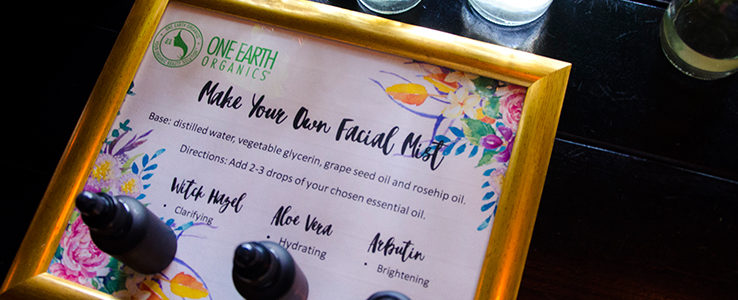 ONE EARTH
ORGANICS
Make Your Own Facial Mist
Base: distilled water, vegetable glycerin, grape seed oil and rosehip oil.
Directions: Add 2-3 drops of your chosen essential oil.
Witch Hazel
• Clarifying
Aloe Vera
• Hydrating
Arbutin
• Brightening